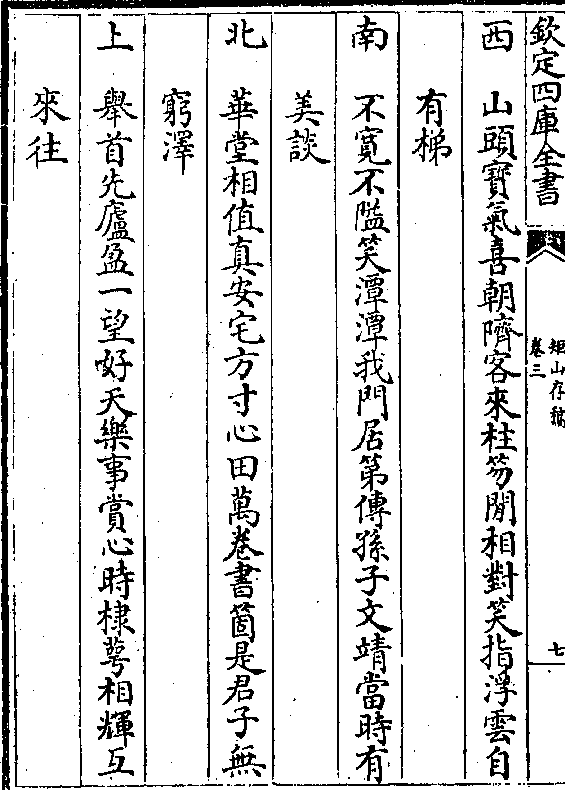 欽定四庫全書
矩山存稿
卷三
七
西　山頭寶氣喜朝隮客來柱笏閒相對笑指浮雲自
有梯
南　不寬不隘笑潭潭我門居第傳孫子文靖當時有
美談
北　華堂相值真安宅方寸心田萬卷書箇是君子無
窮澤
上　舉首先廬盈一望好天樂事賞心時棣萼相輝互
來往